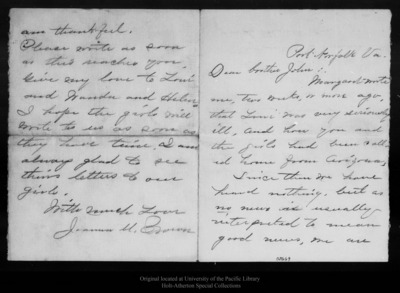 Port Norfolk Va.
Dear brother John:
Margaret wrote
me, two weeks, or more ago,
that Louie was very seriously
ill, and how you and
the girls had been call
ed home from Arizona,
Since then we have
heard nothing, but as
no news is usually
interpreted to mean
good news, we are
am thankful.
Please write as soon
as this reaches you,
Give my love to Louie
and Wanda and Helen
I hope the girls will
write to us as soon as
they have time. I am
always glad to see
their letters to our
girls.
With much Love
Joanna M. Brown
Original located at University of the Pacific Library
Holt-Atherton Special Collections